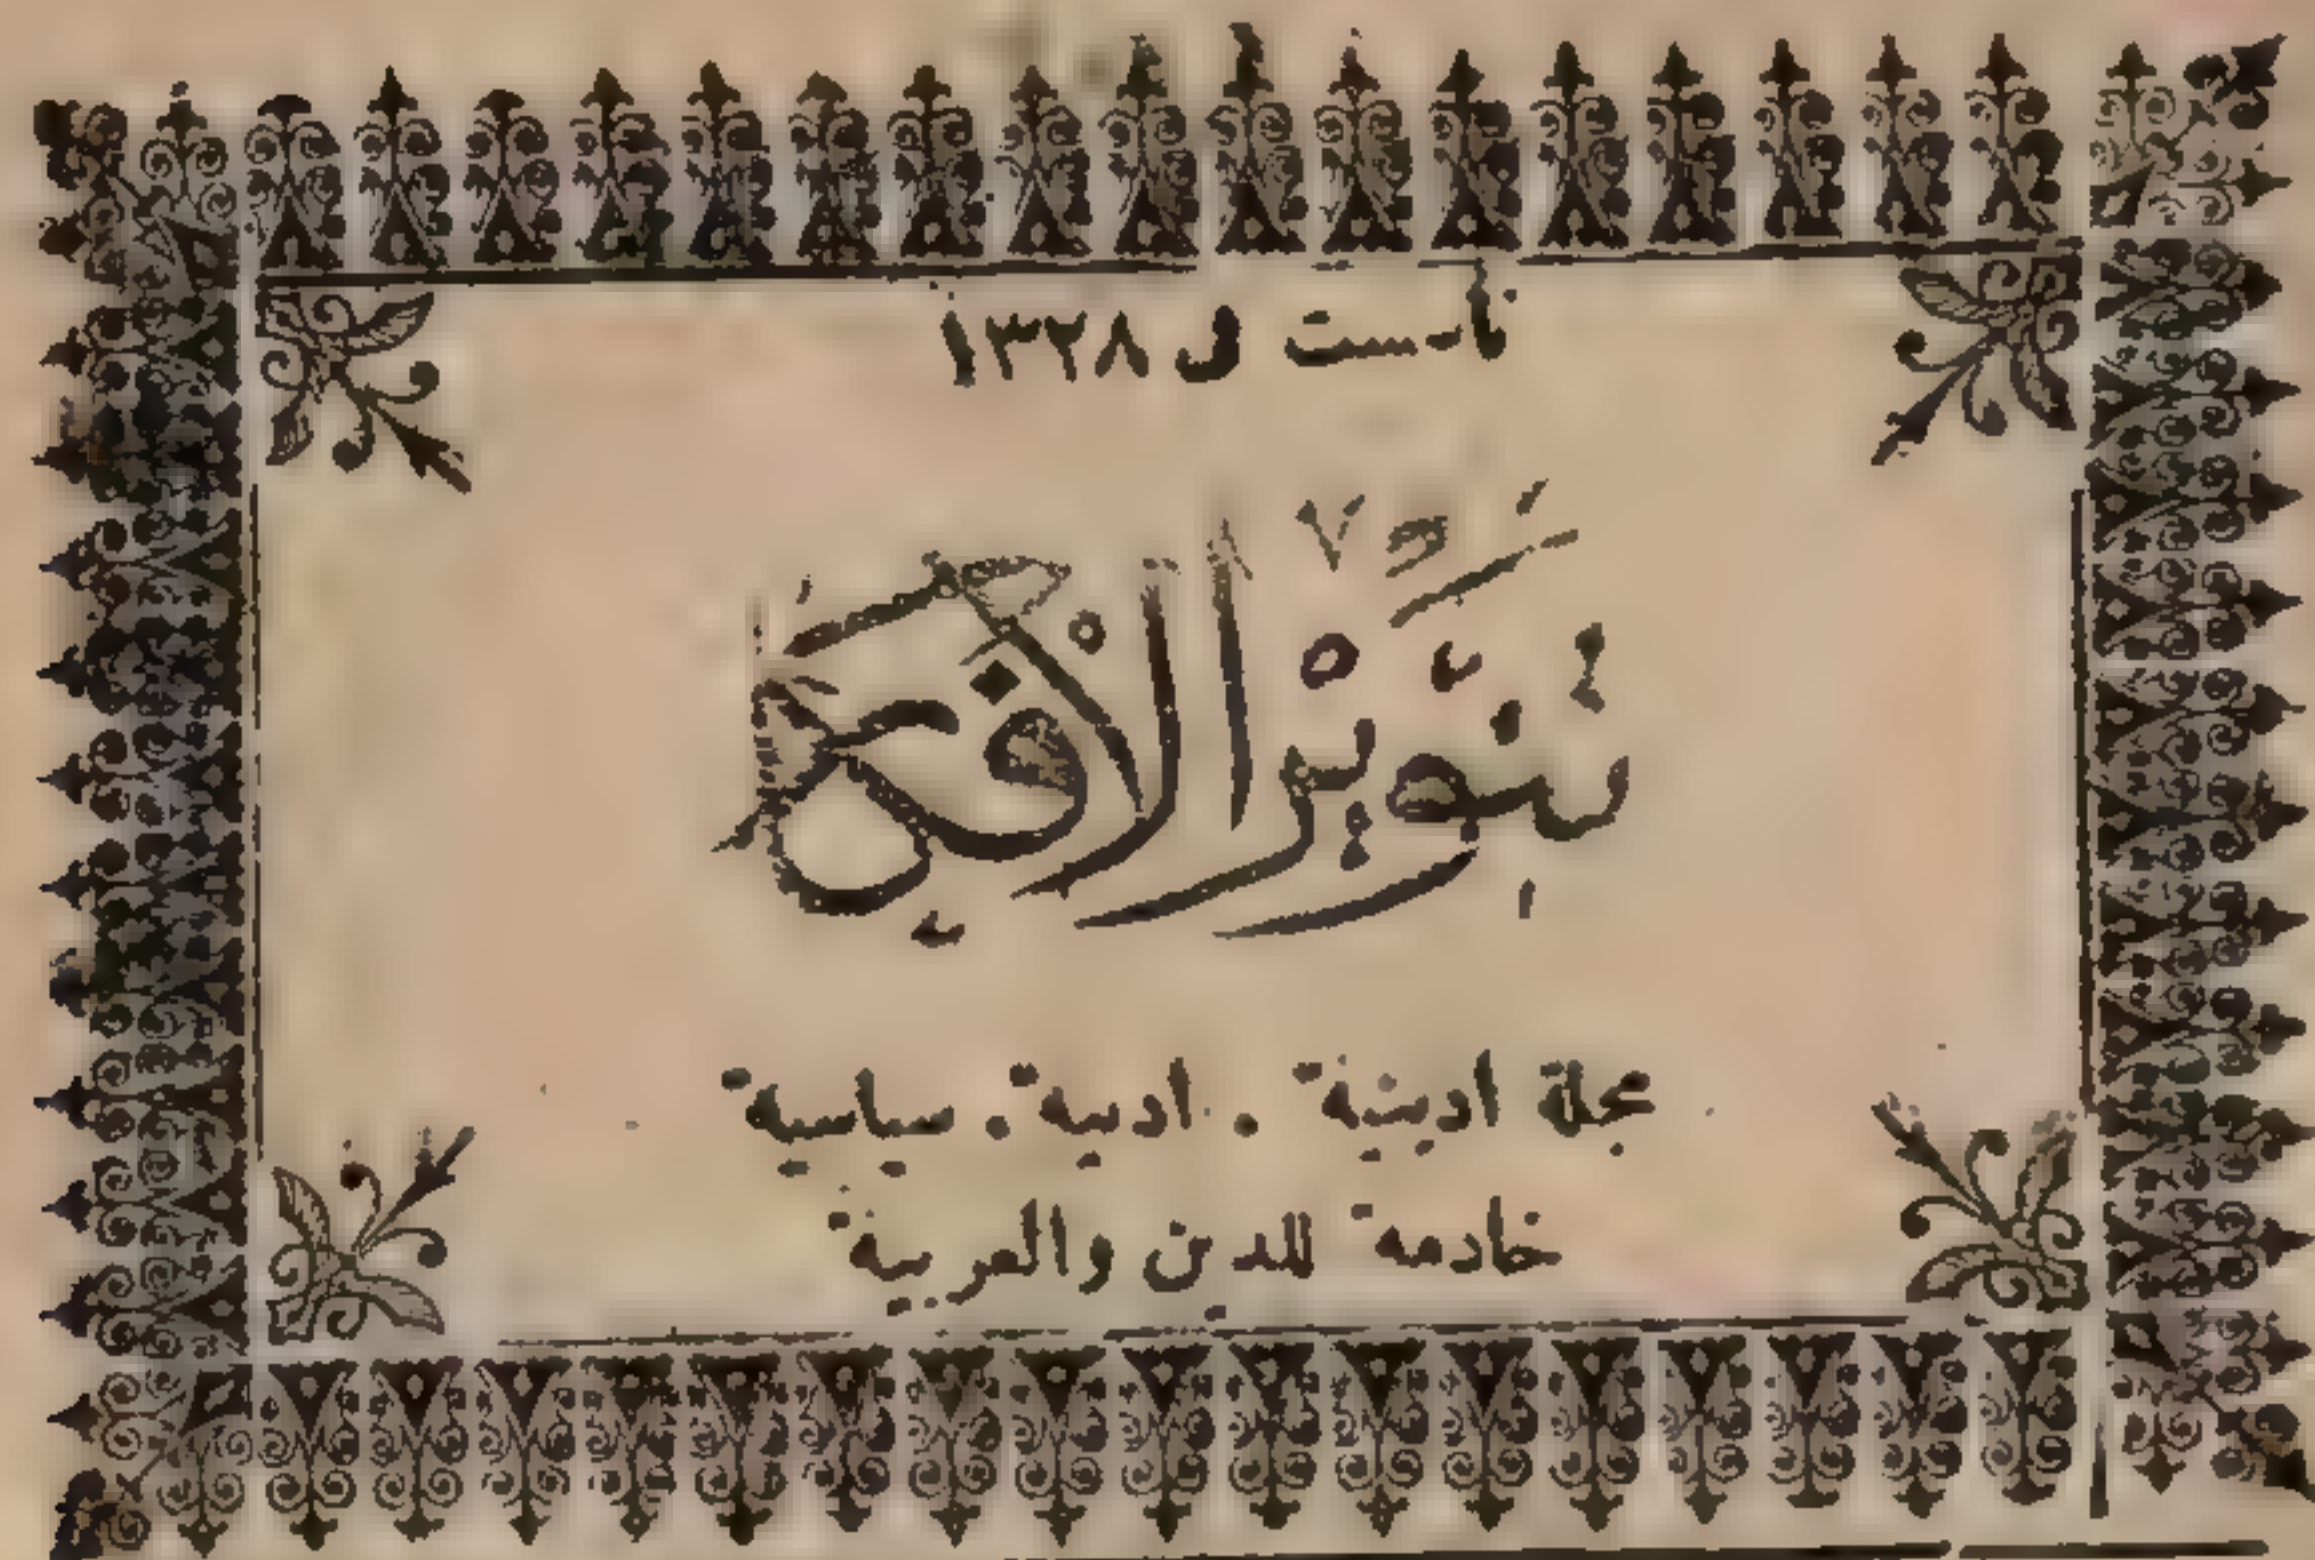 تأسست في ١٣٢٨
تنوير الافكار
مجلة ادينية . ادبية . سياسية
خادمة للدين والعربية